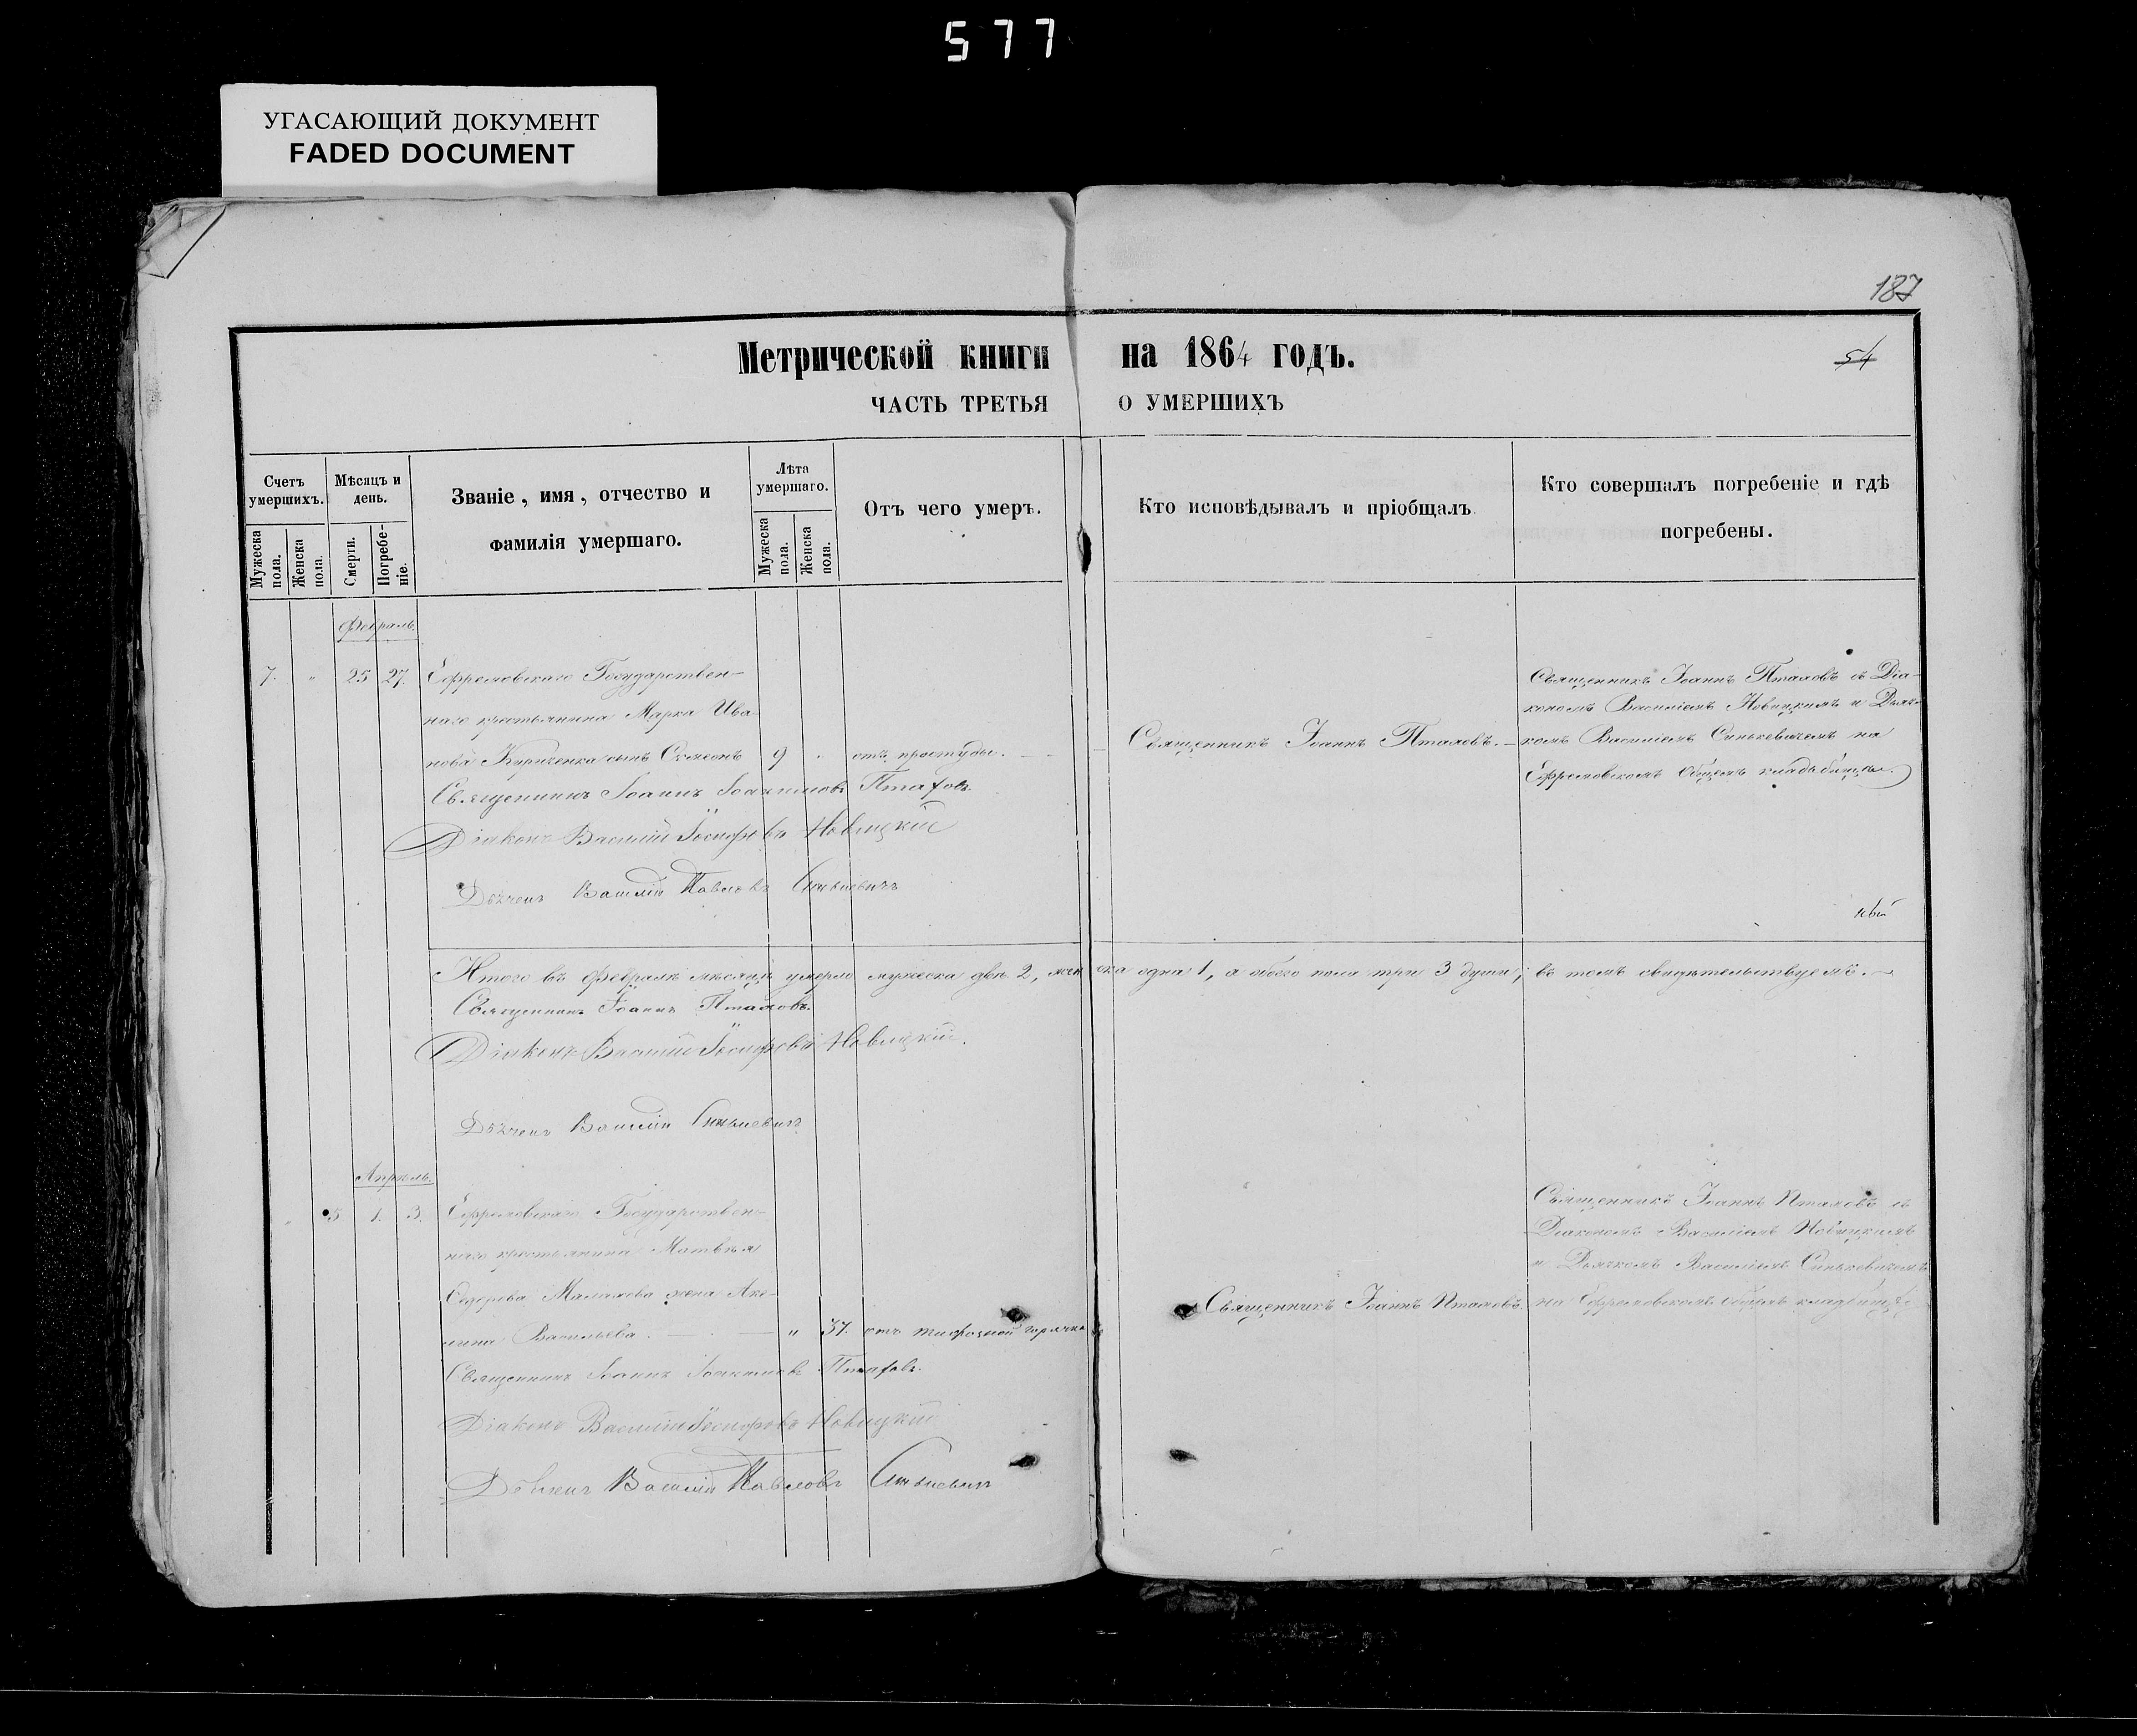 577
УГАСАЮЩИЙ ДОКУМЕНТ
FADED DOCUMENT
187
54
Метрической книги на 1864 годъ.
ЧАСТЬ ТРЕТЬЯ О УМЕРШИХЪ
Счетъ умершихъ.
Мужеска пола.
Женска пола.
Мѣсяцъ и день.
Смерти.
Погребеніе.
Званіе, имя, отчество и
фамилія умершаго.
Лѣта умершаго.
Мужеска пола.
Женска пола.
Отъ чего умеръ.
Кто исповѣдывалъ и пріобщалъ
Кто совершалъ погребеніе и гдѣ
погребены.
Февраль.
7. " 25 27. Ефремовскаго Государствен-
наго крестьянина Марка Ива-
нова сынъ Симеонъ 9 отъ простуды.
Священникъ Іоаннъ Птаховъ.
Священникъ Іоаннъ Птаховъ съ Діа-
кономъ Василіемъ Новицкимъ и Дьяч-
комъ Василіемъ Синькевичемъ на
Ефремовскомъ общемъ кладбищѣ.
Священникъ Іоаннъ Іоакимовъ Птаховъ
Діаконъ Василій Іосифовъ Новицкій
Дьячекъ Василій Павловъ Синькевичъ
Итого въ Февралѣ мѣсяцѣ умерло мужеска двѣ 2, женска одна 1, а обоего пола три 3 души; въ томъ свидѣтельствуемъ.
Священникъ Іоаннъ Птаховъ.
Діаконъ Василій Іосифовъ Новицкій.
Дьячекъ Василій Синькевичъ
Апрѣль.
" 5 1. 3. Ефремовскаго Государствен-
наго крестьянина Матвѣя
Сидорова Малахова жена Аку-
лина Васильева. " 37. отъ тифозной горячки
Священникъ Іоаннъ Птаховъ.
Священникъ Іоаннъ Птаховъ съ
Діакономъ Василіемъ Новицкимъ
и Дьячкомъ Василіемъ Синькевичемъ
на Ефремовскомъ общемъ кладбищѣ.
Священникъ Іоаннъ Іоакимовъ Птаховъ.
Діаконъ Василій Іосифовъ Новицкій
Дьячекъ Василій Павловъ Синькевичъ